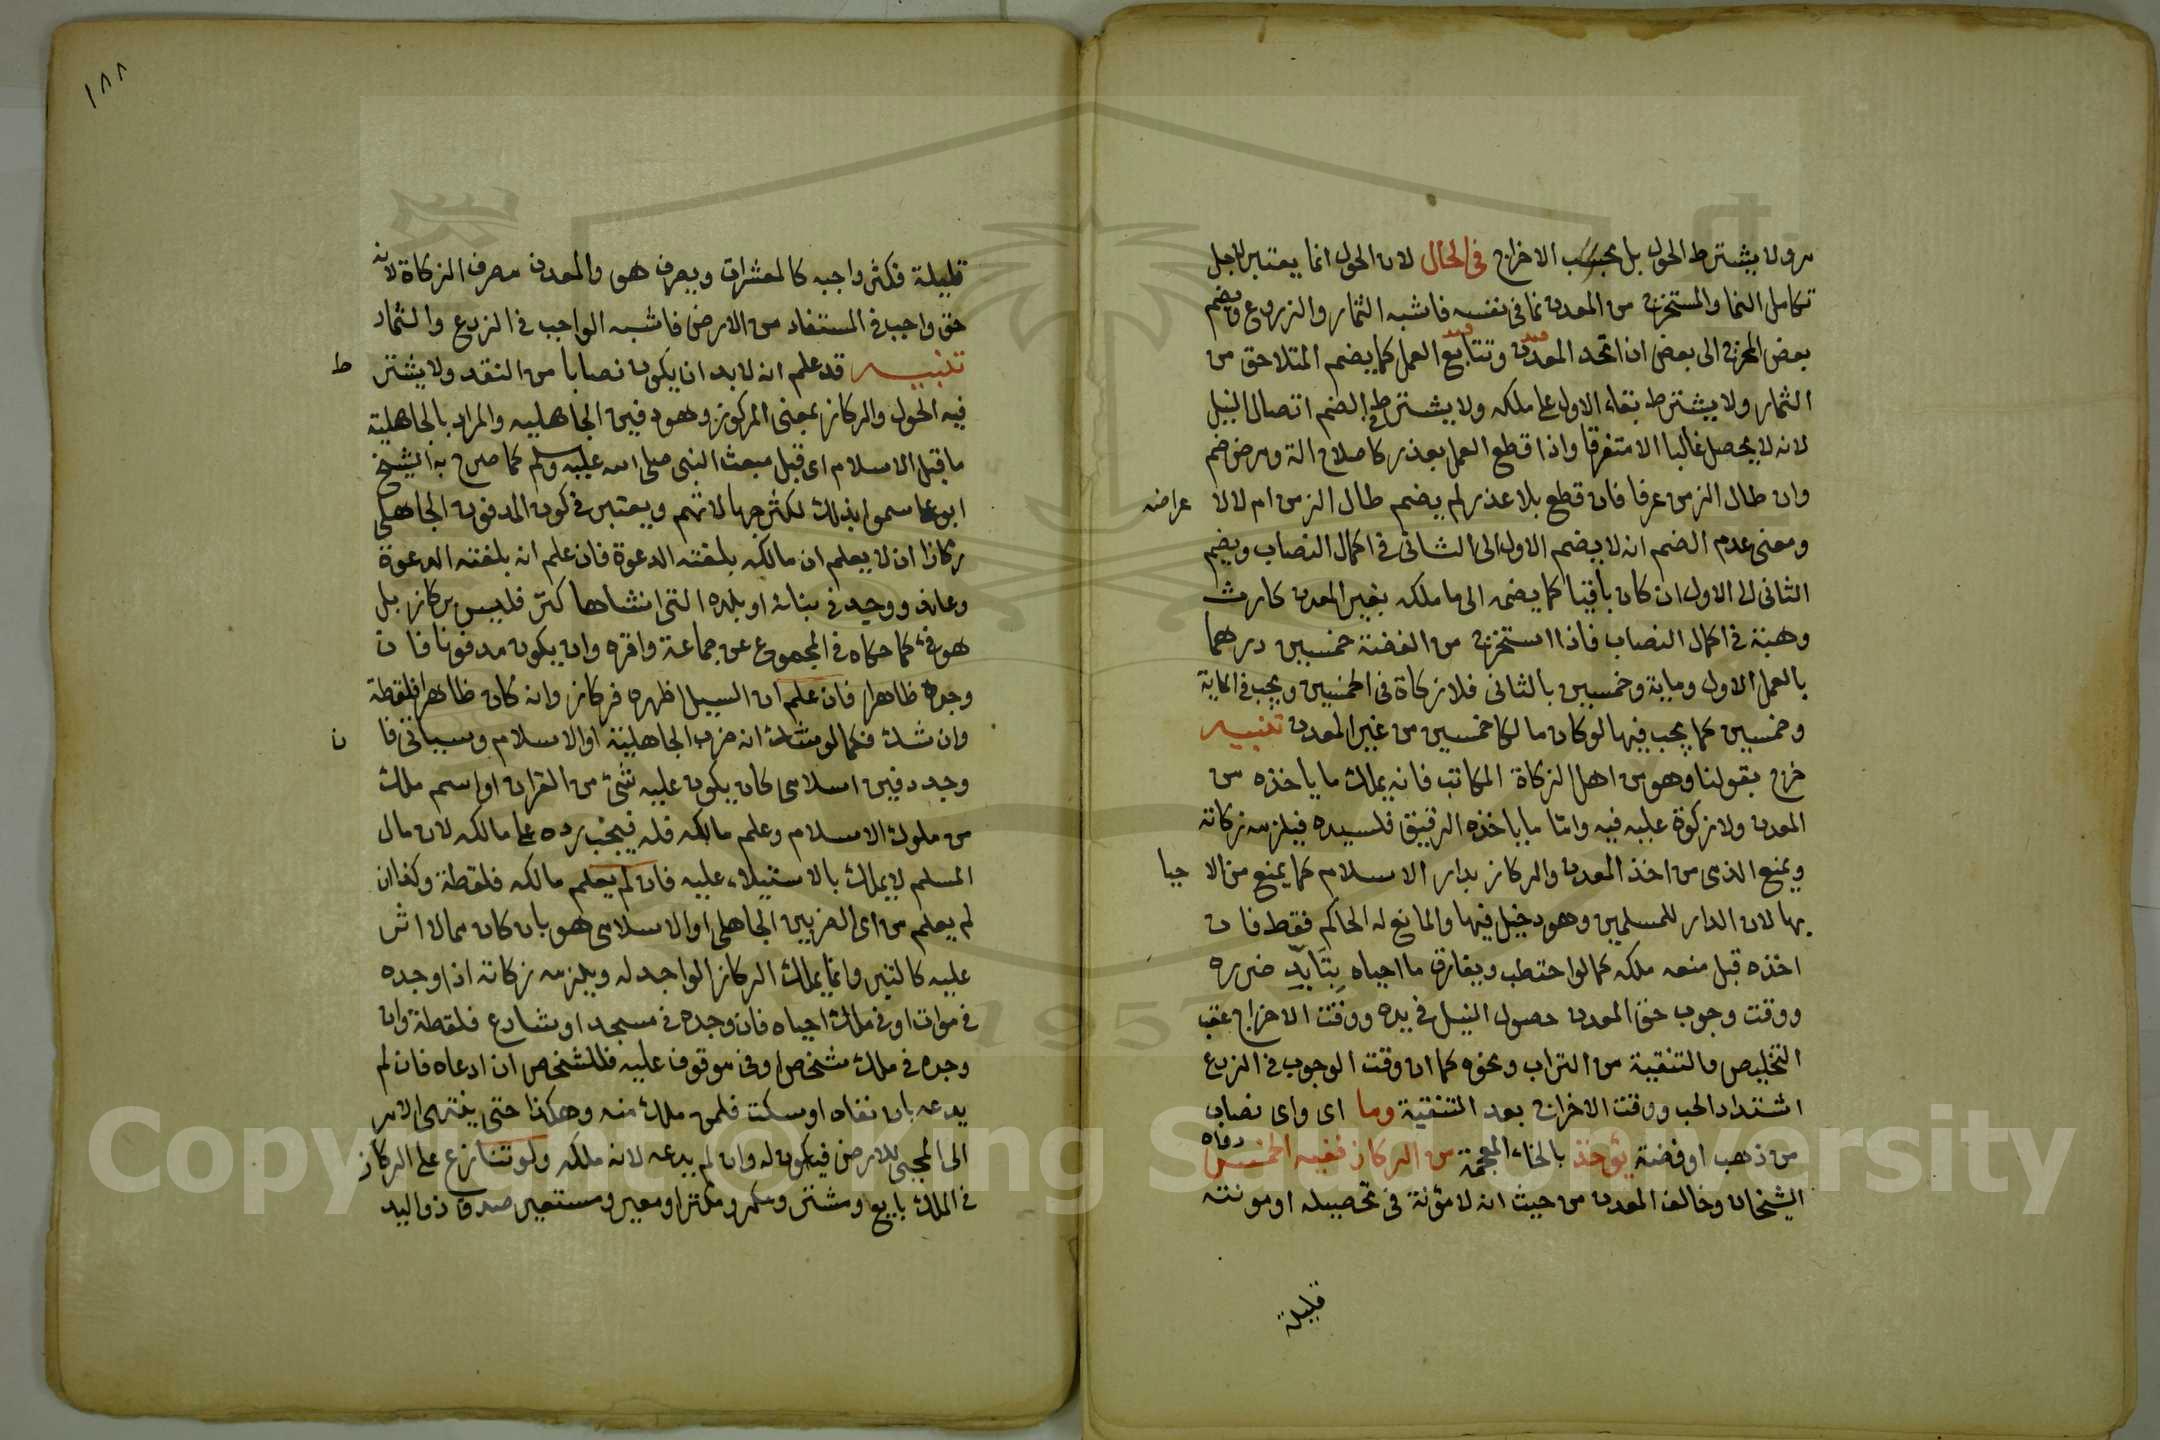 مر ولا يشترط الحول بل يجب الاخراج في الحال لان الحول انما يعتبر لاجل
تكامل النما والمستخرج من المعدن نما في نفسه فاشبه الثمار والزروع ويضم
بعض المخرج الى بعض ان اتحد المعدن وتتابع العمل كما يضم المتلاحق من
الثمار ولا يشترط بقاء الاول على ملكه ولا يشترط في الضم اتصال النيل
لانه لا يحصل غالبا الا متفرقا واذا قطع العمل بعذر كاصلاح الة ومرض ضم
وان طال الزمن عرفا فان قطع بلا عذر لم يضم طال الزمن ام لا لا عراضه
ومعنى عدم الضم انه لا يضم الاول الى الثاني في اكمال النصاب ويضم
الثاني الى الاول ان كان باقيا كما يضمه الى ما ملكه بغير المعدن كارث
وهبة في اكمال النصاب فاذا استخرج من الفضة خمسين درهما
بالعمل الاول ومايه وخمسين بالثاني فلا زكاة في الخمسين ويجب في الماية
وخمسين كما يجب فيها لو كان مالكا خمسين من غير المعدن تنبيه
خرج بقولنا وهو من اهل الزكاة المكاتب فانه يملك ما ياخذه من
المعدن ولا زكوة عليه فيه واما ما ياخذه الرقيق فلسيده فيلزمه زكاته
ويمنع الذمى من اخذ المعدن والركاز بدار الاسلام كما يمنع من الا حيا
بها لان الدار للمسلمين وهو دخيل فيها والمانع له الحاكم فقط فان
اخذه قبل منعه ملكه كما لو احتطب ويفارق ما احياه بتأبد ضرره
ووقت وجوب حق المعدن حصول النيل في يده ووقت الاخراج عقب
التخليص والتنقية من التراب ونحوه كما ان وقت الوجوب في الزرع
اشتداد الحب ووقت الاخراج بعد التنقية وما اى واى نصاب
من ذهب او فضة يؤخذ بالخاء المعجمة من الركاز ففيه الخمس رواه
الشيخان وخالف المعدن من حيث انه لا مؤنة في تحصيله او مونته
قليلة
١٨٨
قليلة فكثر واجبه كالمعشرات ويصرف هو والمعدن مصرف الزكاة لانه
حق واجب في المستفاد من الارض فاشبه الواجب في الزرع والثمار
تنبيه قد علم انه لا بد ان يكون نصابا من النقد ولا يشتر ط
فيه الحول والركاز بمعنى المركوز وهو دفين الجاهليه والمراد بالجاهلية
ما قبل الاسلام اى قبل مبعث النبي صلى الله عليه وسلم كما صرح به الشيخ
ابو على سموا بذلك لكثرة جهالاتهم ويعتبر في كون المدفون الجاهلي
ركازا ان لا يعلم ان مالكه بلغته الدعوة فان علم انه بلغته الدعوة
وعاند ووجد في بنائه او بلده التى انشاها كنز فليس بركاز بل
هو فئ كما حكاه في المجموع عن جماعة واقره وان يكون مدفونا فان
وجده ظاهرا فان علم ان السيل اظهره فركاز وانه كان ظاهرا فلقطة
وان شك فكما لو شك انه ضرب الجاهلية او الاسلام وسياتي فا ن
وجد دفين اسلامى كان يكون عليه شئ من القران او اسم ملك
من ملوك الاسلام وعلم مالكه فله فيجب رده على مالكه لان مال
المسلم لا يملك بالاستيلاء عليه فان لم يعلم مالكه فلقطة وكذا ان
لم يعلم من اى الضربين الجاهلى او الاسلامى هو بان كان مما لا اثر
عليه كالتبر وانما يملك الركاز الواجد له ويلزمه زكاته اذا وجده
في موات او في ملك احياه فان وجده في مسجد او شارع فلقطة وان
وجده في ملك شخص او في موقوف عليه فللشخص ان ادعاه فان لم
يدعه بان نفاه او سكت فلمن ملك منه وهكذا حتى ينتهى الامر
الى المحيى للارض فيكون له وان لم يدعه لانه ملكه ولو تنازع على الركاز
في الملك بايع او مشتر ومكر ومكتر او معير ومستعير صدق ذو اليد